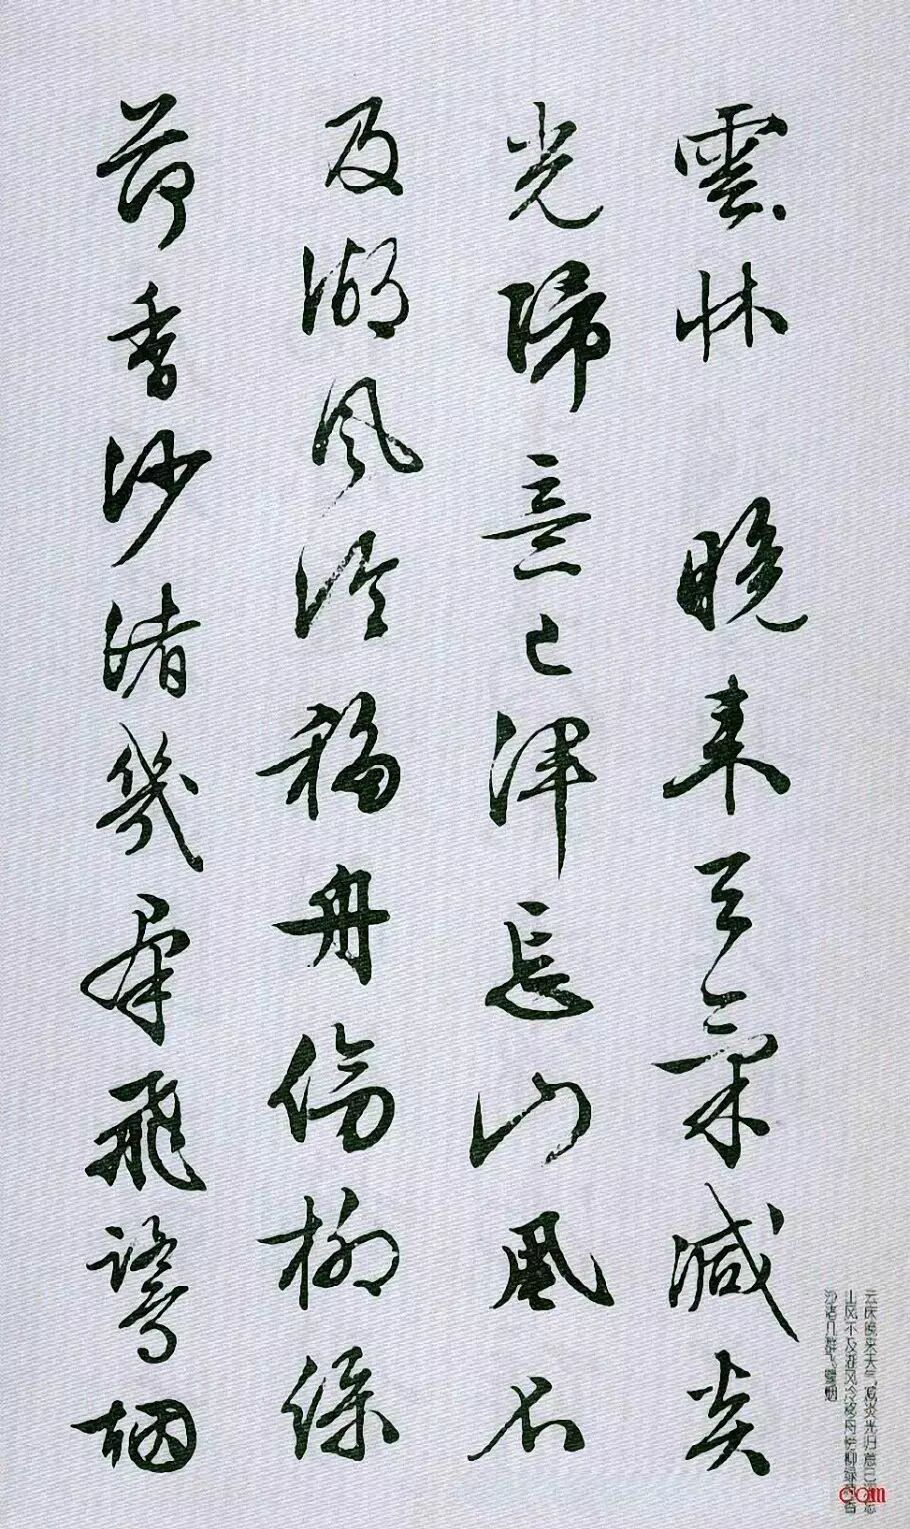 雲牀 晚來天氣減炎
光歸意已渾忘山風不
及湖風冷移舟傍柳綠
荷香沙渚幾羣飛鷺烟
云床晚来天气减炎光归意已浑忘
山风不及湖风冷移舟傍柳绿荷香
沙渚几群飞鹭烟
com